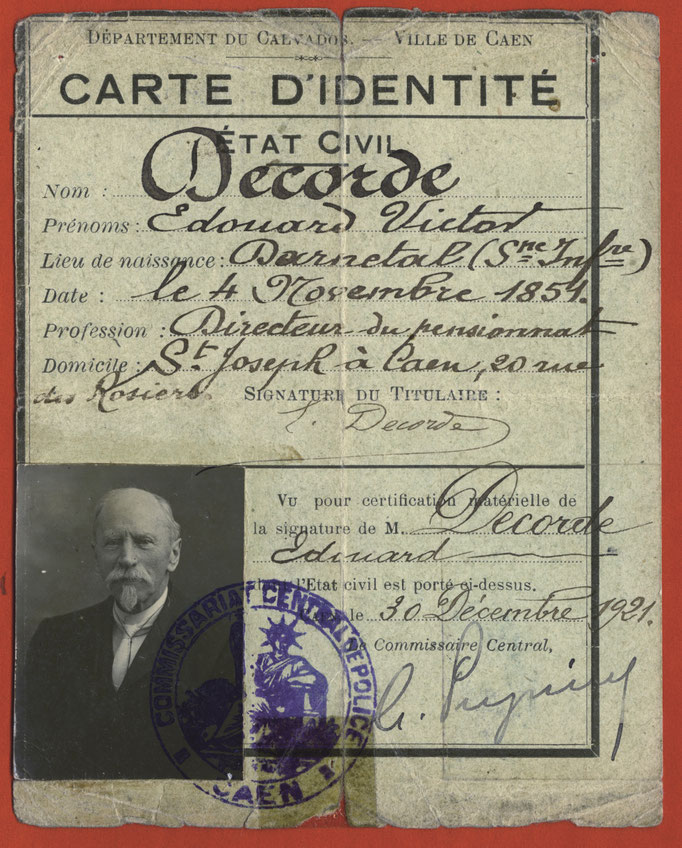 DÉPARTEMENT DU CALVADOS. — VILLE DE CAEN
CARTE D'IDENTITÉ
ÉTAT CIVIL
Nom : Decorde
Prénoms : Edouard Victor
Lieu de naissance : Darnetal (Sne Infre)
Date : le 4 Novembre 1854.
Profession : Directeur du pensionnat
Domicile : St Joseph à Caen, 20 rue
des Rosiers. SIGNATURE DU TITULAIRE :
Decorde
VU pour certification matérielle de
la signature de M. Decorde
Edouard
l'Etat civil est porté ci-dessus.
le 30 Décembre 1921.
Commissaire Central,
COMMISSARIAT CENTRAL DE POLICE
CAEN